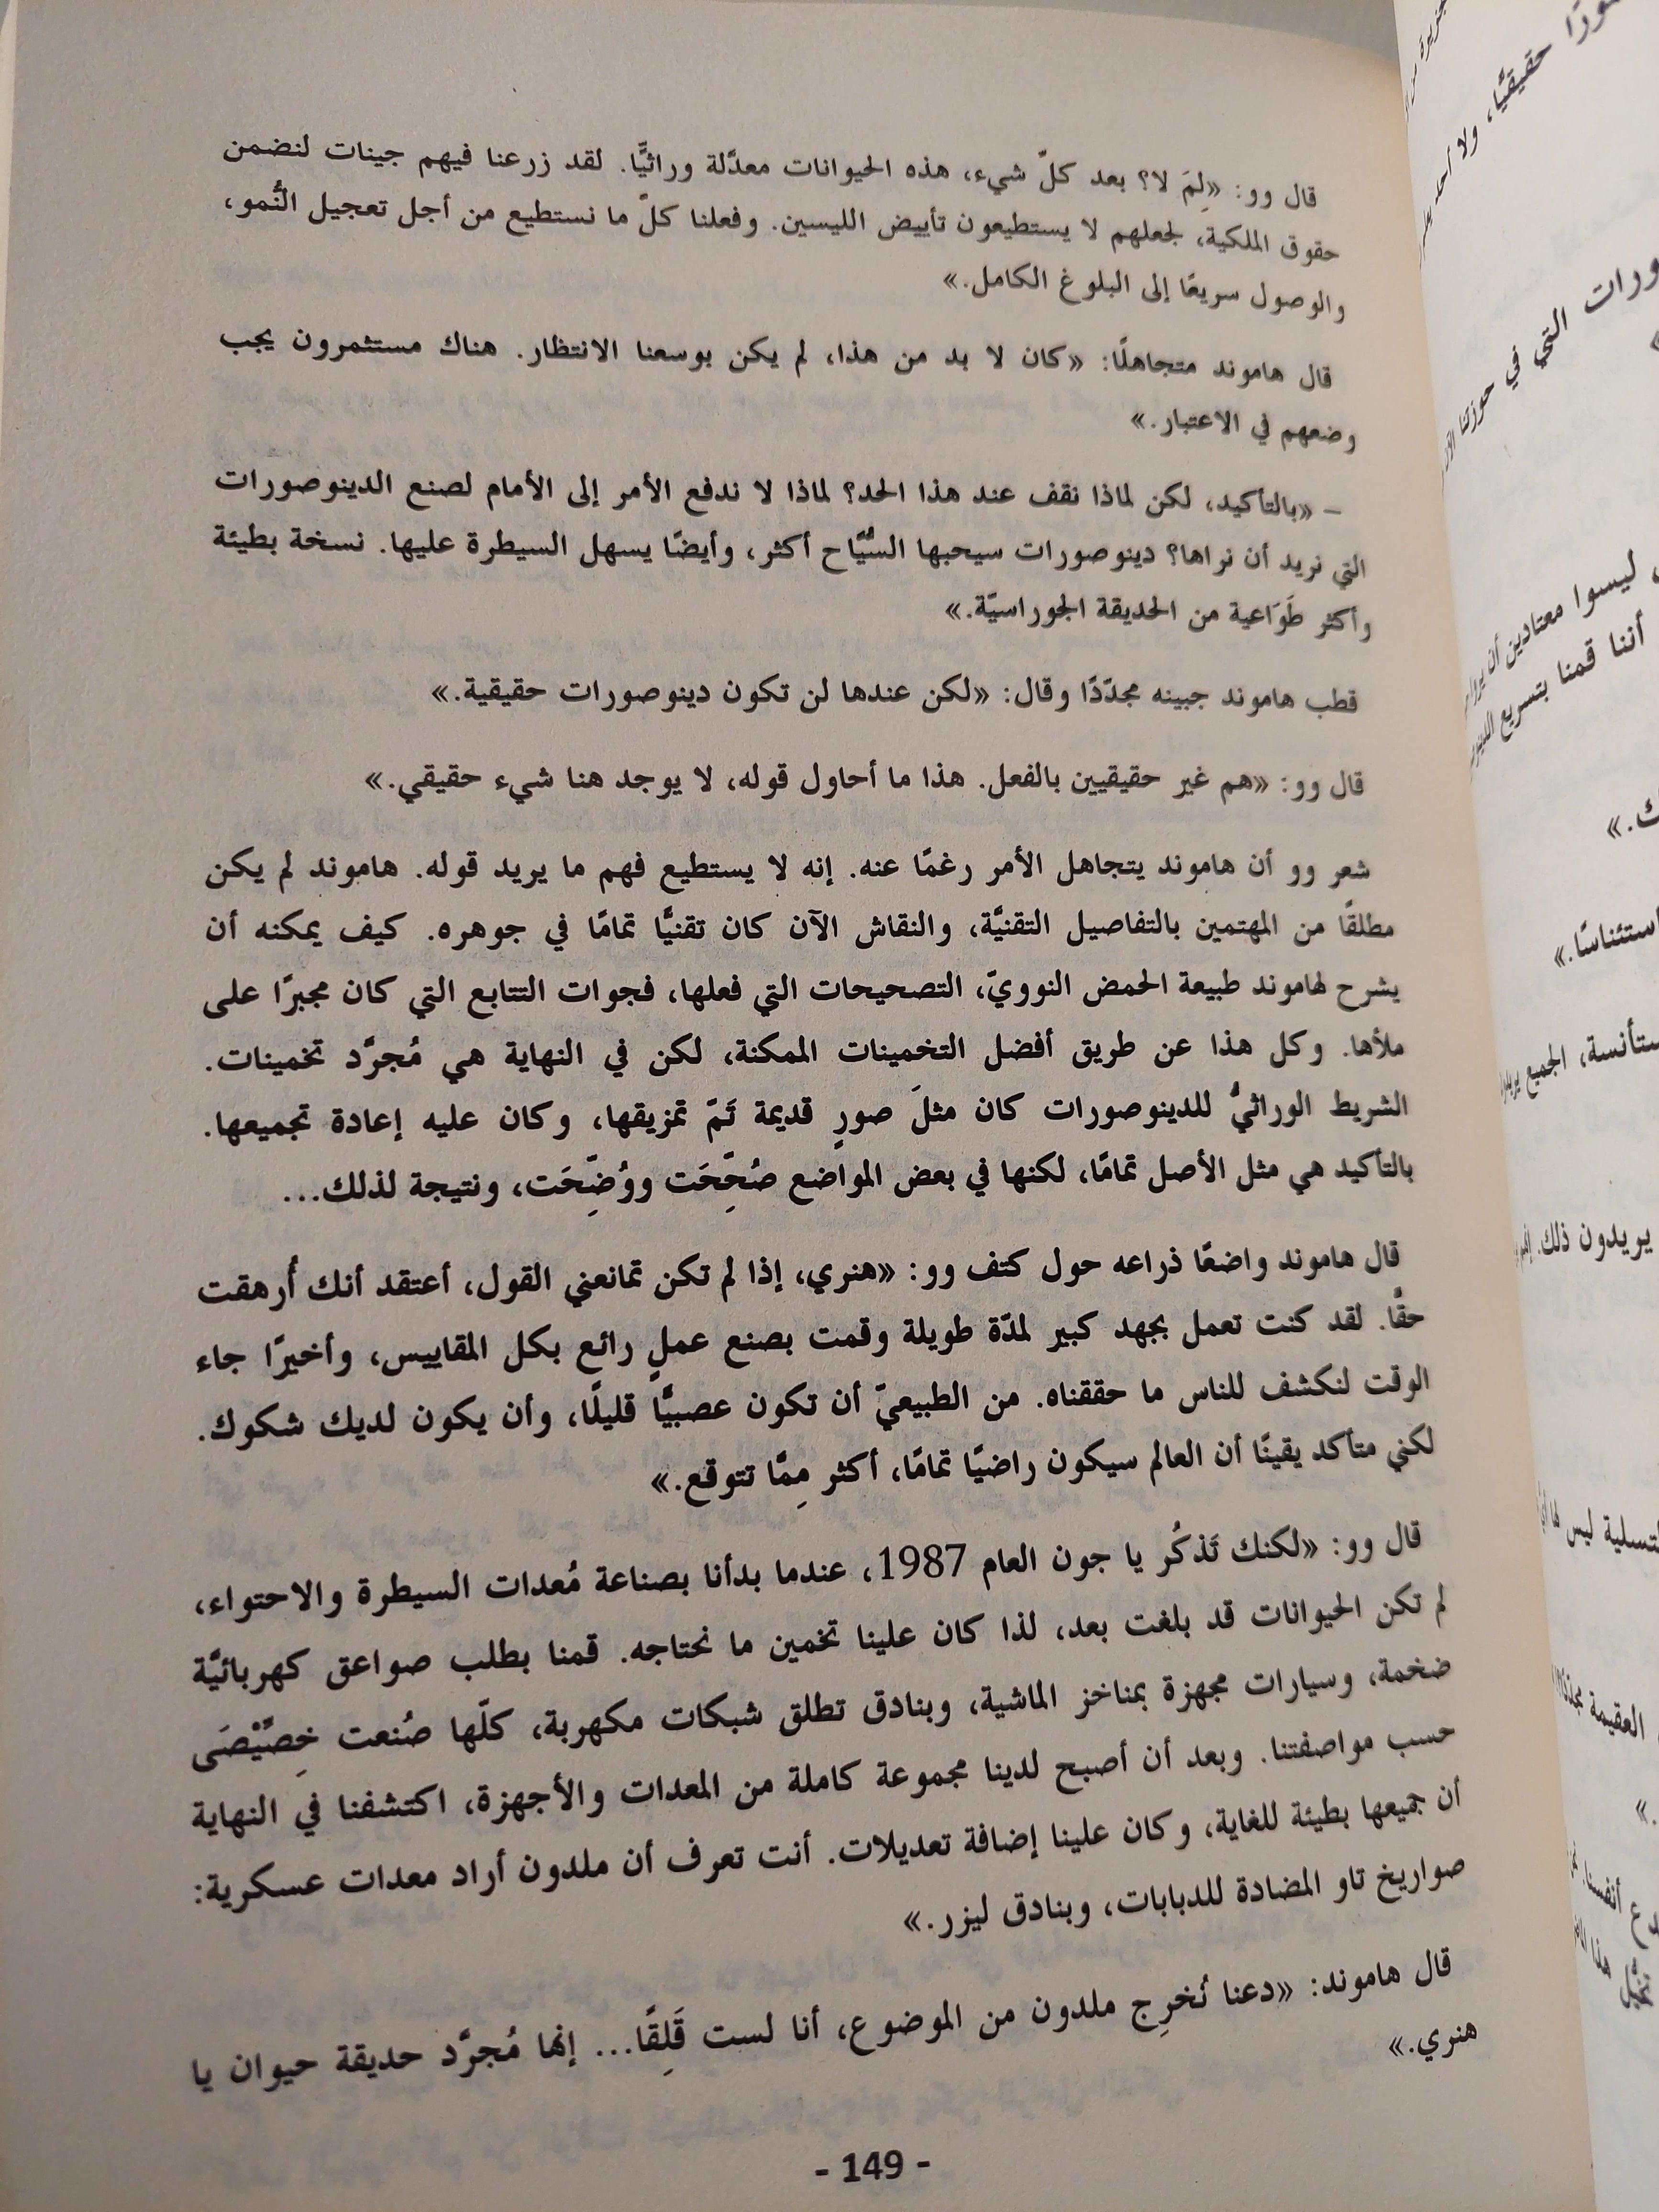 قال وو: «لِمَ لا؟ بعد كلّ شيء، هذه الحيوانات معدَّلة وراثيًّا. لقد زرعنا فيهم جينات لنضمن
حقوق الملكية، لجعلهم لا يستطيعون تأييض الليسين. وفعلنا كلّ ما نستطيع من أجل تعجيل النُّمو،
والوصول سريعًا إلى البلوغ الكامل.»
قال هاموند متجاهلًا: «كان لا بد من هذا، لم يكن بوسعنا الانتظار. هناك مستثمرون يجب
وضعهم في الاعتبار.»
– «بالتأكيد، لكن لماذا نقف عند هذا الحد؟ لماذا لا ندفع الأمر إلى الأمام لصنع الدينوصورات
التي نريد أن نراها؟ دينوصورات سيحبها السُّيَّاح أكثر، وأيضًا يسهل السيطرة عليها. نسخة بطيئة
وأكثر طَوَاعية من الحديقة الجوراسيّة.»
قطب هاموند جبينه مجدّدًا وقال: «لكن عندها لن تكون دينوصورات حقيقية.»
قال وو: «هم غير حقيقيين بالفعل. هذا ما أحاول قوله، لا يوجد هنا شيء حقيقي.»
شعر وو أن هاموند يتجاهل الأمر رغمًا عنه. إنه لا يستطيع فهم ما يريد قوله. هاموند لم يكن
مطلقًا من المهتمين بالتفاصيل التقنيَّة، والنقاش الآن كان تقنيًّا تمامًا في جوهره. كيف يمكنه أن
يشرح لهاموند طبيعة الحمض النوويّ، التصحيحات التي فعلها، فجوات التتابع التي كان مجبرًا على
ملأها. وكل هذا عن طريق أفضل التخمينات الممكنة، لكن في النهاية هي مُجرَّد تخمينات.
الشريط الوراثيُّ للدينوصورات كان مثلَ صورٍ قديمة تَمّ تمزيقها، وكان عليه إعادة تجميعها.
بالتأكيد هي مثل الأصل تمامًا، لكنها في بعض المواضع صُحِّحَت ووُضِّحَت، ونتيجة لذلك...
قال هاموند واضعًا ذراعه حول كتف وو: «هنري، إذا لم تكن تمانعني القول، أعتقد أنك أُرهقت
حقًّا. لقد كنت تعمل بجهد كبير لمدّة طويلة وقمت بصنع عملٍ رائع بكل المقاييس، وأخيرًا جاء
الوقت لنكشف للناس ما حققناه. من الطبيعيّ أن تكون عصبيًّا قليلًا، وأن يكون لديك شكوك.
لكني متأكد يقينًا أن العالم سيكون راضيًا تمامًا، أكثر مِمَّا تتوقع.»
قال وو: «لكنك تَذكُر يا جون العام 1987، عندما بدأنا بصناعة مُعدات السيطرة والاحتواء،
لم تكن الحيوانات قد بلغت بعد، لذا كان علينا تخمين ما نحتاجه. قمنا بطلب صواعق كهربائيَّة
ضخمة، وسيارات مجهزة بمناخز الماشية، وبنادق تطلق شبكات مكهربة، كلّها صُنعت خِصَّيْصَى
حسب مواصفتنا. وبعد أن أصبح لدينا مجموعة كاملة من المعدات والأجهزة، اكتشفنا في النهاية
أن جميعها بطيئة للغاية، وكان علينا إضافة تعديلات. أنت تعرف أن ملدون أراد معدات عسكرية:
صواريخ تاو المضادة للدبابات، وبنادق ليزر.»
قال هاموند: «دعنا نُخرِج ملدون من الموضوع، أنا لست قَلِقًا... إنها مُجرَّد حديقة حيوان يا
هنري.»
- 149 -